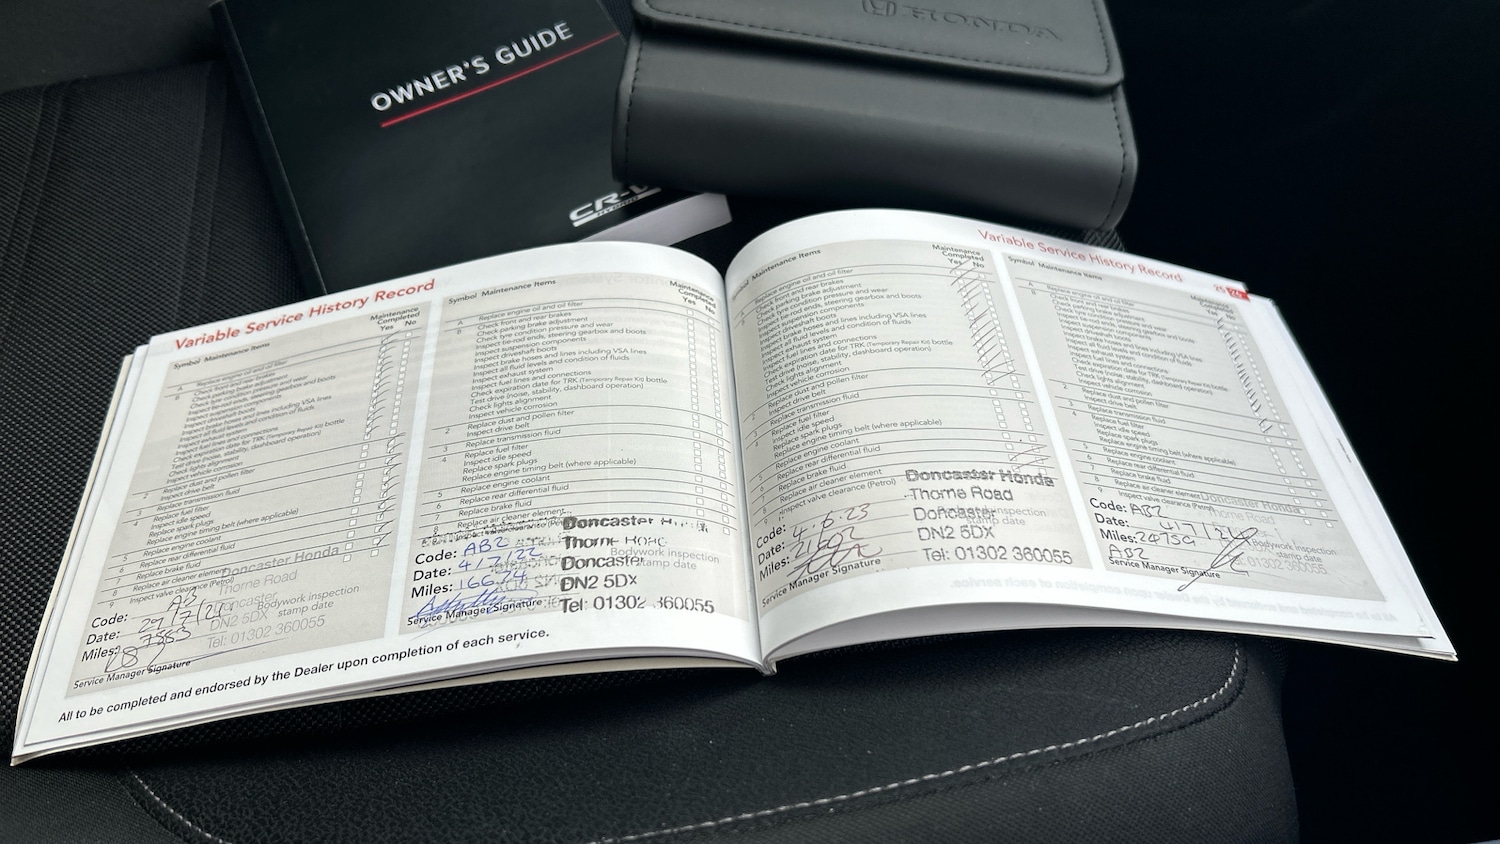 OWNER'S GUIDE
HONDA
CR-V
HYBRID
Variable Service History Record
Symbol Maintenance Items
Maintenance
Completed
Yes No
A Replace engine oil and oil filter
B Check front and rear brakes
Check parking brake adjustment
Check tyre condition pressure and wear
Inspect tie-rod ends, steering gearbox and boots
Inspect suspension components
Inspect driveshaft boots
Inspect brake hoses and lines including VSA lines
Inspect all fluid levels and condition of fluids
Inspect exhaust system
Inspect fuel lines and connections
Check expiration date for TRK (Temporary Repair Kit) bottle
Test drive (noise, stability, dashboard operation)
Check lights alignment
Inspect vehicle corrosion
2 Replace dust and pollen filter
Inspect drive belt
3 Replace transmission fluid
4 Replace fuel filter
Inspect idle speed
Replace spark plugs
Replace engine timing belt (where applicable)
5 Replace engine coolant
6 Replace rear differential fluid
7 Replace brake fluid
8 Replace air cleaner element
9 Inspect valve clearance (Petrol)
Doncaster Honda
Thorne Road
Doncaster
DN2 5DX
Tel: 01302 360055
Bodywork inspection
stamp date
Code:
Date:
Miles: 7883
Service Manager Signature
Symbol Maintenance Items
Maintenance
Completed
Yes No
A Replace engine oil and oil filter
B Check front and rear brakes
Check parking brake adjustment
Check tyre condition pressure and wear
Inspect tie-rod ends, steering gearbox and boots
Inspect suspension components
Inspect driveshaft boots
Inspect brake hoses and lines including VSA lines
Inspect all fluid levels and condition of fluids
Inspect exhaust system
Inspect fuel lines and connections
Check expiration date for TRK (Temporary Repair Kit) bottle
Test drive (noise, stability, dashboard operation)
Check lights alignment
Inspect vehicle corrosion
2 Replace dust and pollen filter
Inspect drive belt
3 Replace transmission fluid
4 Replace fuel filter
Inspect idle speed
Replace spark plugs
Replace engine timing belt (where applicable)
5 Replace engine coolant
6 Replace rear differential fluid
7 Replace brake fluid
8 Replace air cleaner element
Doncaster
Thorne Road
Doncaster
DN2 5DX
Tel: 01302 360055
Bodywork inspection
stamp date
Code: ABZ
Date: 4/7/22
Miles: 16674
Service Manager Signature
All to be completed and endorsed by the Dealer upon completion of each service.
Variable Service History Record
25 26
Maintenance Items
Maintenance
Completed
Yes No
Replace engine oil and oil filter
Check front and rear brakes
Check parking brake adjustment
Check tyre condition pressure and wear
Inspect tie-rod ends, steering gearbox and boots
Inspect suspension components
Inspect driveshaft boots
Inspect brake hoses and lines including VSA lines
Inspect all fluid levels and condition of fluids
Inspect exhaust system
Inspect fuel lines and connections
Check expiration date for TRK (Temporary Repair Kit) bottle
Test drive (noise, stability, dashboard operation)
Check lights alignment
Inspect vehicle corrosion
2 Replace dust and pollen filter
Inspect drive belt
3 Replace transmission fluid
4 Replace fuel filter
Inspect idle speed
Replace spark plugs
Replace engine timing belt (where applicable)
5 Replace engine coolant
6 Replace rear differential fluid
7 Replace brake fluid
8 Replace air cleaner element
9 Inspect valve clearance (Petrol)
Doncaster Honda
Thorne Road
Doncaster
DN2 5DX
Tel: 01302 360055
inspection
stamp date
Code:
Date: 4.6.23
Miles: 21602
Service Manager Signature
Symbol Maintenance Items
Maintenance
Completed
Yes No
A Replace engine oil and oil filter
B Check front and rear brakes
Check parking brake adjustment
Check tyre condition pressure and wear
Inspect tie-rod ends, steering gearbox and boots
Inspect suspension components
Inspect driveshaft boots
Inspect brake hoses and lines including VSA lines
Inspect all fluid levels and condition of fluids
Inspect exhaust system
Inspect fuel lines and connections
Check expiration date for TRK (Temporary Repair Kit) bottle
Test drive (noise, stability, dashboard operation)
Check lights alignment
Inspect vehicle corrosion
2 Replace dust and pollen filter
Inspect drive belt
3 Replace transmission fluid
4 Replace fuel filter
Inspect idle speed
Replace spark plugs
Replace engine timing belt (where applicable)
5 Replace engine coolant
6 Replace rear differential fluid
7 Replace brake fluid
8 Replace air cleaner element
9 Inspect valve clearance (Petrol)
Doncaster Honda
Thorne Road
Bodywork inspection
stamp date
01302 360055
Code: ABZ
Date: 4/7/24
Miles: 24759
ABZ
Service Manager Signature